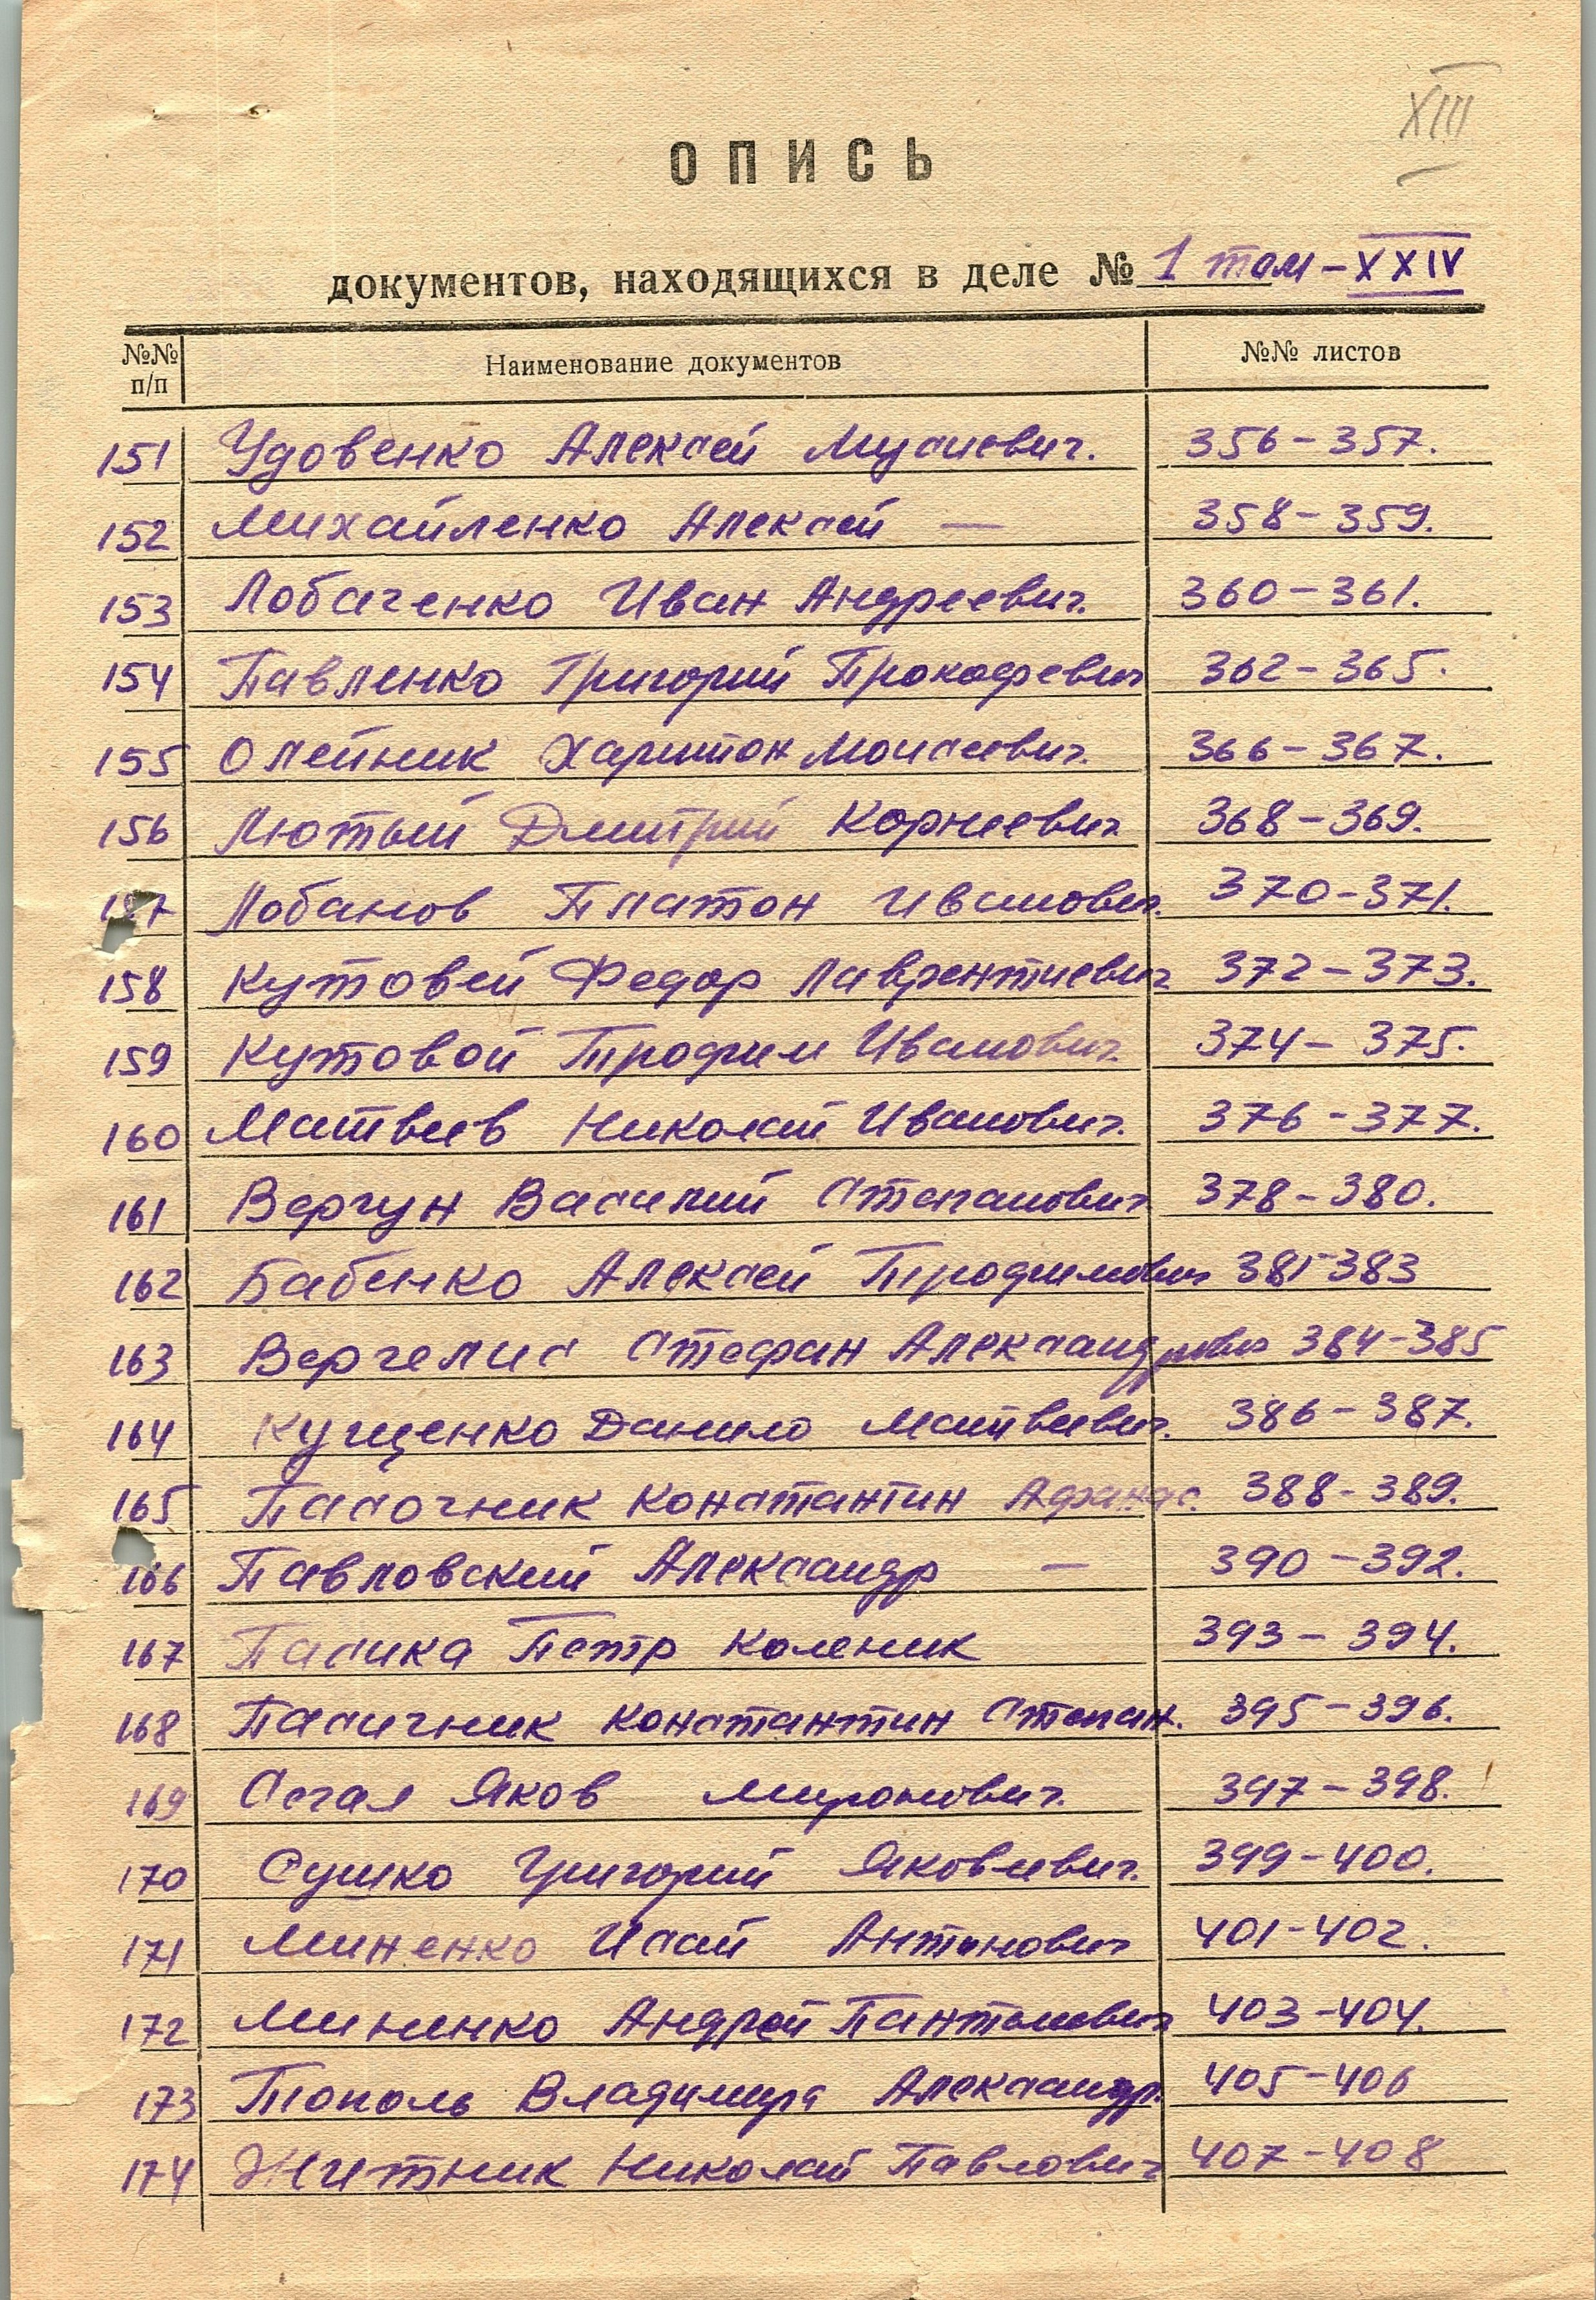 XIII
ОПИСЬ
документов, находящихся в деле № 1 том - XXIV
№№ п/п Наименование документов №№ листов
151 Удовенко Алексей Мусиевич. 356-357.
152 Михайленко Алексей — 358-359.
153 Лобаченко Иван Андреевич. 360-361.
154 Павленко Григорий Прокофевич 362-365.
155 Олейник Харитон Моисеевич. 366-367.
156 Лютый Дмитрий Корнеевич 368-369.
157 Лобанов Платон Иванович. 370-371.
158 Кутовей Федор Лаврентиевич 372-373.
159 Кутовой Трофим Иванович 374-375.
160 Матвеев Николай Иванович. 376-377.
161 Вергун Василий Степанович 378-380.
162 Бабенко Алексей Трофимович 381-383
163 Вергелис Стефан Александрович 384-385
164 Кущенко Данило Матвеевич. 386-387.
165 Пасочник Константин Афанас. 388-389.
166 Павловский Александр — 390-392.
167 Пасика Петр Коленик 393-394.
168 Пасичник Константин Степан. 395-396.
169 Сегал Яков Миронович. 397-398.
170 Сушко Григорий Яковлевич. 399-400.
171 Миненко Исай Антонович 401-402.
172 Мининко Андрей 403-404.
173 Тополь Владимир Александр. 405-406
174 Житник Николай Павлович 407-408